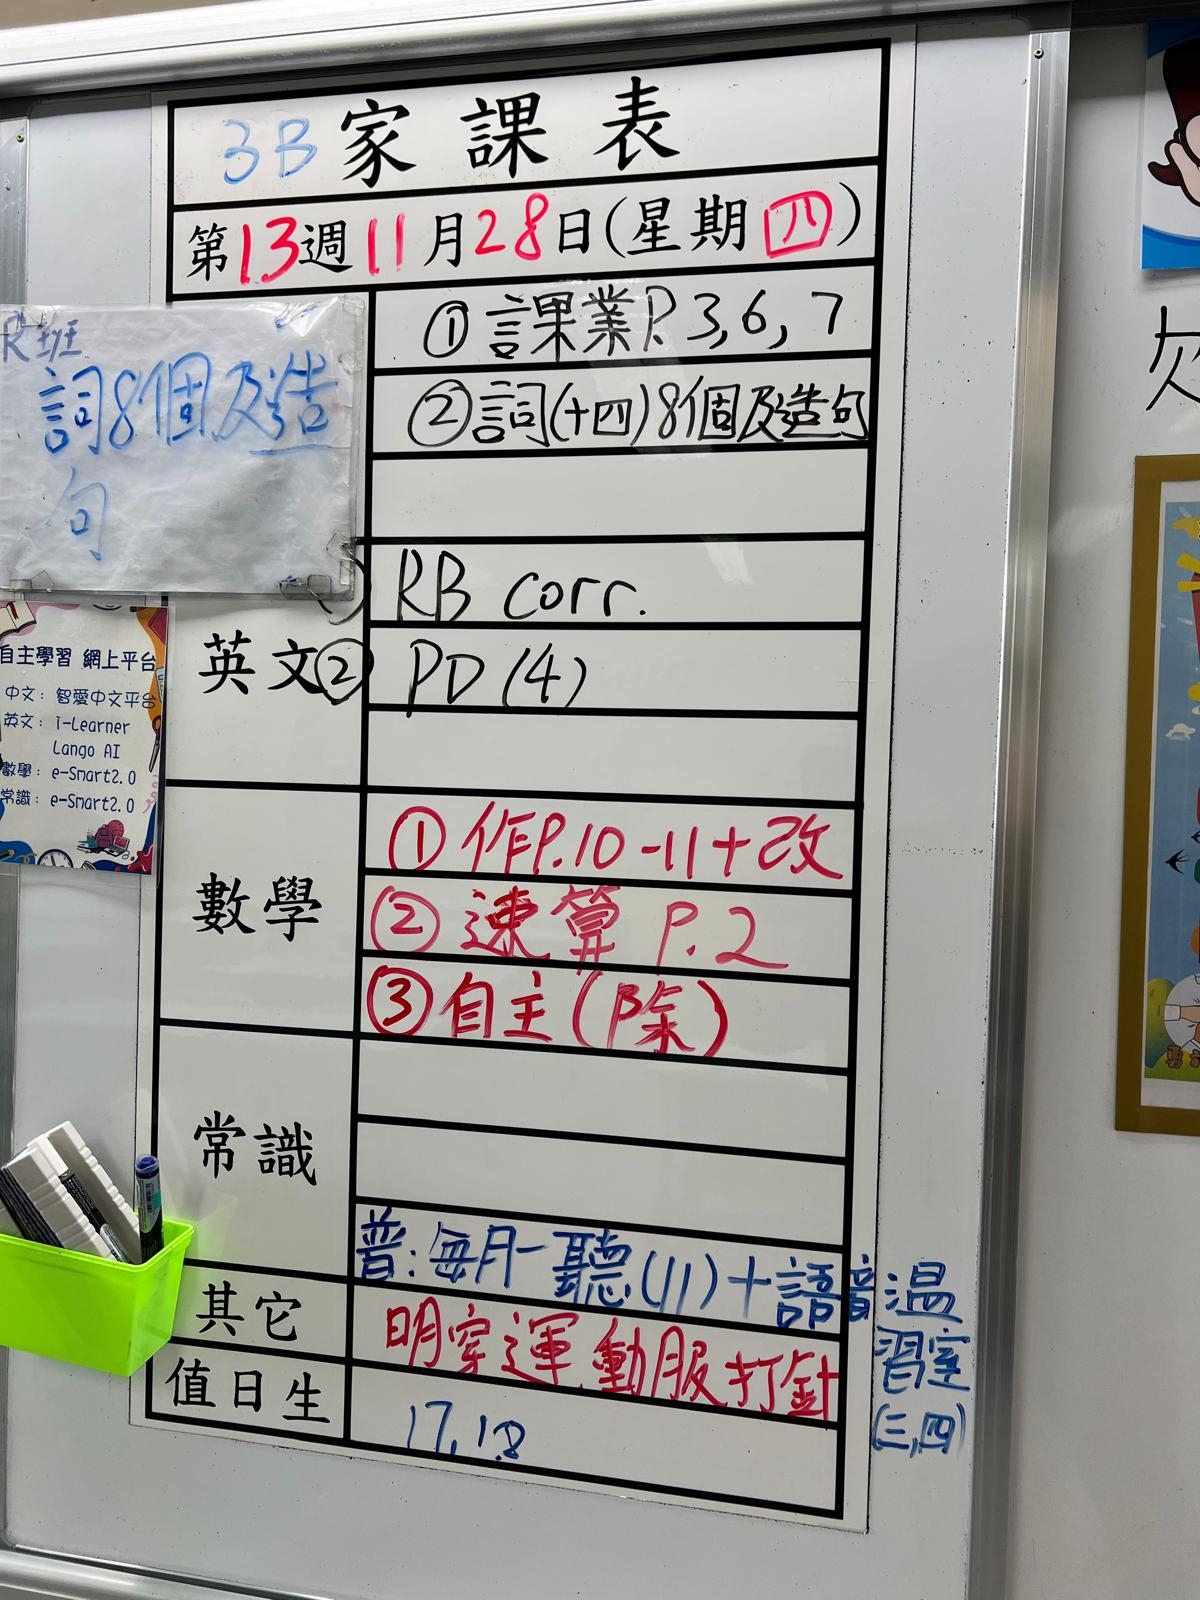 3B 家課表
第13週11月28日(星期四)
① 課業P. 3, 6, 7
② 詞(十四)8個及造句
R班
詞8個及造
句
RB corr.
英文
② PD (4)
自主學習 網上平台
中文: 智愛中文平台
英文: i-Learner
Lango AI
數學: e-Smart2.0
常識: e-Smart2.0
數學
① 作P.10-11+改
② 速算 P.2
③ 自主(除)
常識
普:每月一聽(11)+語音溫
習室
(三,四)
其它
明穿運動服打針
值日生
17, 18